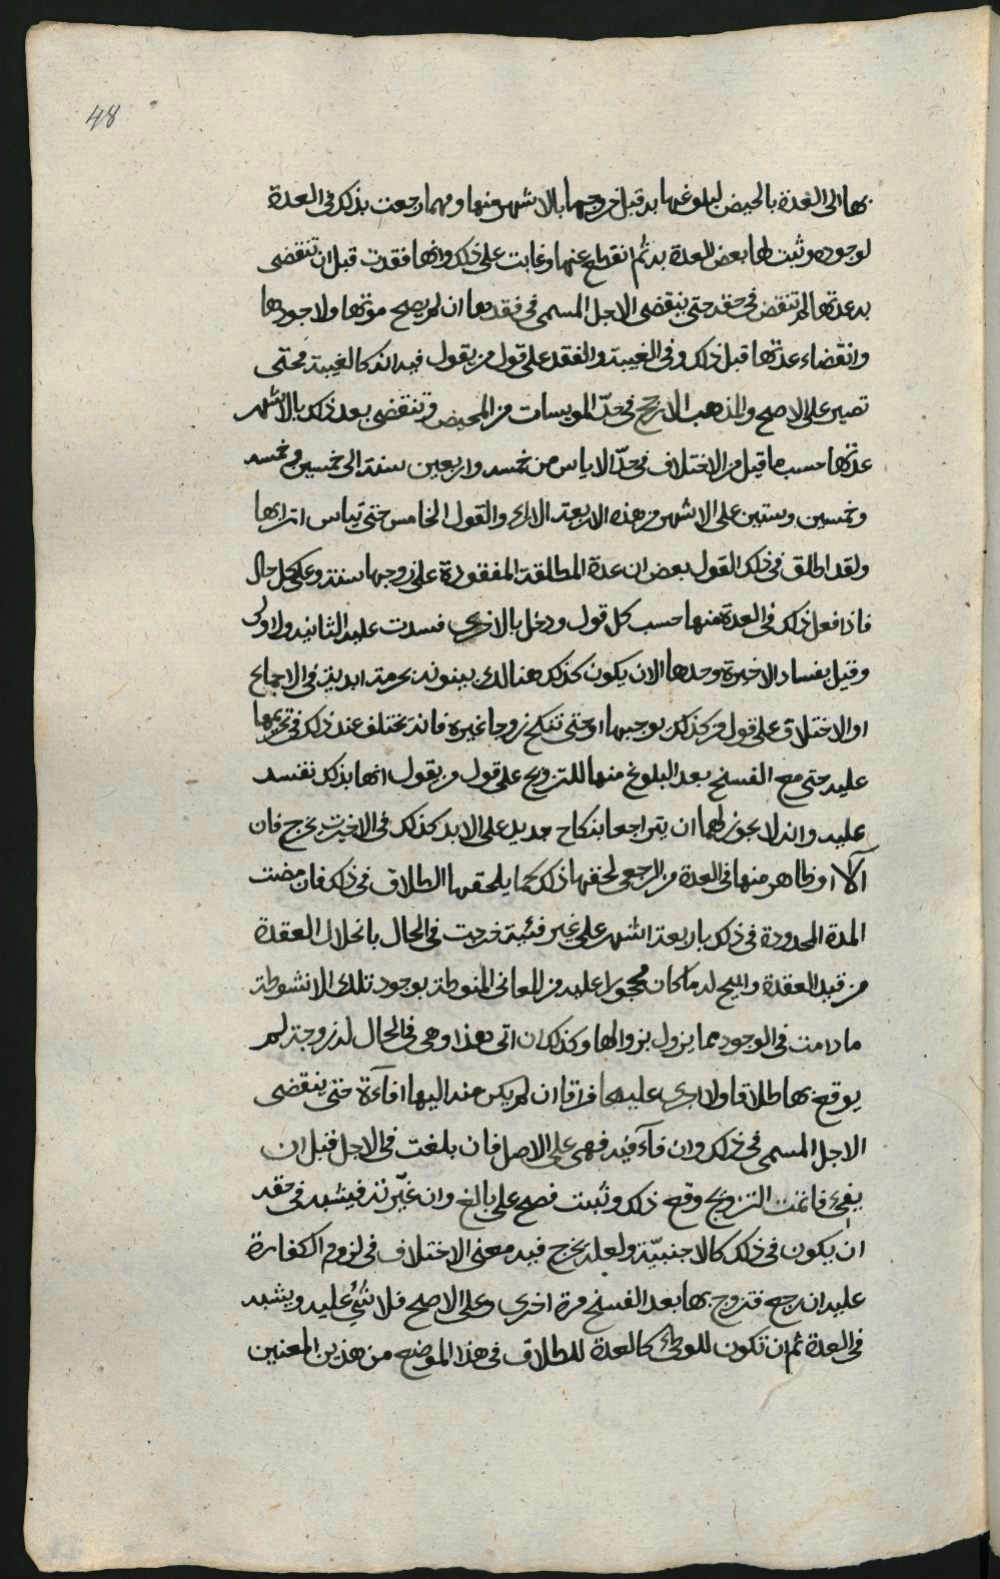 48
بها الى العدة بالحيض لبلوغها به قبل خروجها بالاشهر منها ومهما رجعت بذلك في العدة
لوجوده وثبت لها بعض العدة به ثم انقطع عنها وغابت على ذلك وانها فقدت قبل ان تنقضي
به عدتها لم تنقض في حقه حتى ينقضي الاجل المسمى في فقدها ان لم يصح موتها ولا وجودها
وانقضاء عدتها قبل ذلك وفي الغيبة والفقد على قول من يقول فيه انه كالغيبة فحتى
تصير على الاصح والمذهب الارجح في حد المويسات من المحيض وتنقضي بعد ذلك بالاشهر
عدتها حسب ما قيل من الاختلاف في حد الاياس من خمسه واربعين سنة الى خمسين وخمسه
وخمسين وستين على الاشهر من هذه الاربعة الاراء والقول الخامس حتى تياس اترابها
ولقد اطلق في ذلك القول بعض ان عدة المطلقة المفقودة على زوجها سنة وعلى كل حال
فاذا فعل ذلك في العدة منها حسب كل قول ودخل بالاخرى فسدت عليه الثانيه والاولى
وقيل بفساد الاخيرة وحدها الا ان يكون كذلك هنالك بينونة بحرمة ابدية في الاجماع
او الاختلاف على قول من كذلك يوجبها او حتى تنكح زوجا غيره فانه يختلف عند ذلك في تحريمها
عليه حتى مع الفسخ بعد البلوغ منها للتزويج على قول من يقول انها بذلك تفسد
عليه وانه لا يجوز لهما ان يتراجعا بنكاح جديد على الابد كذلك في الاخيرة يخرج فان
آلا او ظاهر منها في العدة من الرجعي لحقها ذلك كما يلحقها الطلاق في ذلك فان مضت
المدة المحدودة في ذلك باربعة اشهر على غير فئية خرجت في الحال بانحلال العقدة
من قيد العقدة وابيح له ما كان محجورا عليه من المعاني المنوطة بوجود تلك الانشوطة
ما دامت في الوجود مما يزول بزوالها وكذلك ان اتى هذا وهي في الحال له زوجة لم
يوقع بها طلاقا ولا اجرى عليها فراقا ان لم يكن منه اليها افآءة حتى ينقضي
الاجل المسمى في ذلك وان فآء فيه فهي على الاصل فان بلغت في الاجل قبل ان
يفئ فاتمت التزويج وقع ذلك وثبت فصح على بالغ وان غيرته فيشبه في حقه
ان يكون في ذلك كالاجنبية ولعله يخرج فيه معنى الاختلاف في لزوم الكفارة
عليه ان رجع فتزوج بها بعد الفسخ مرة اخرى وعلى الاصح فلا شئ عليه ويشبه
في العدة ثم ان تكون للوطئ كالعدة للطلاق في هذا الموضع من هذين المعنيين